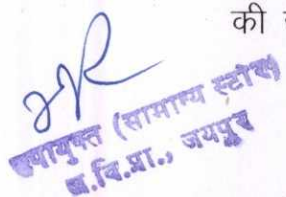 की
उपायुक्त (सामान्य स्टोर)
ज.वि.प्रा., जयपुर